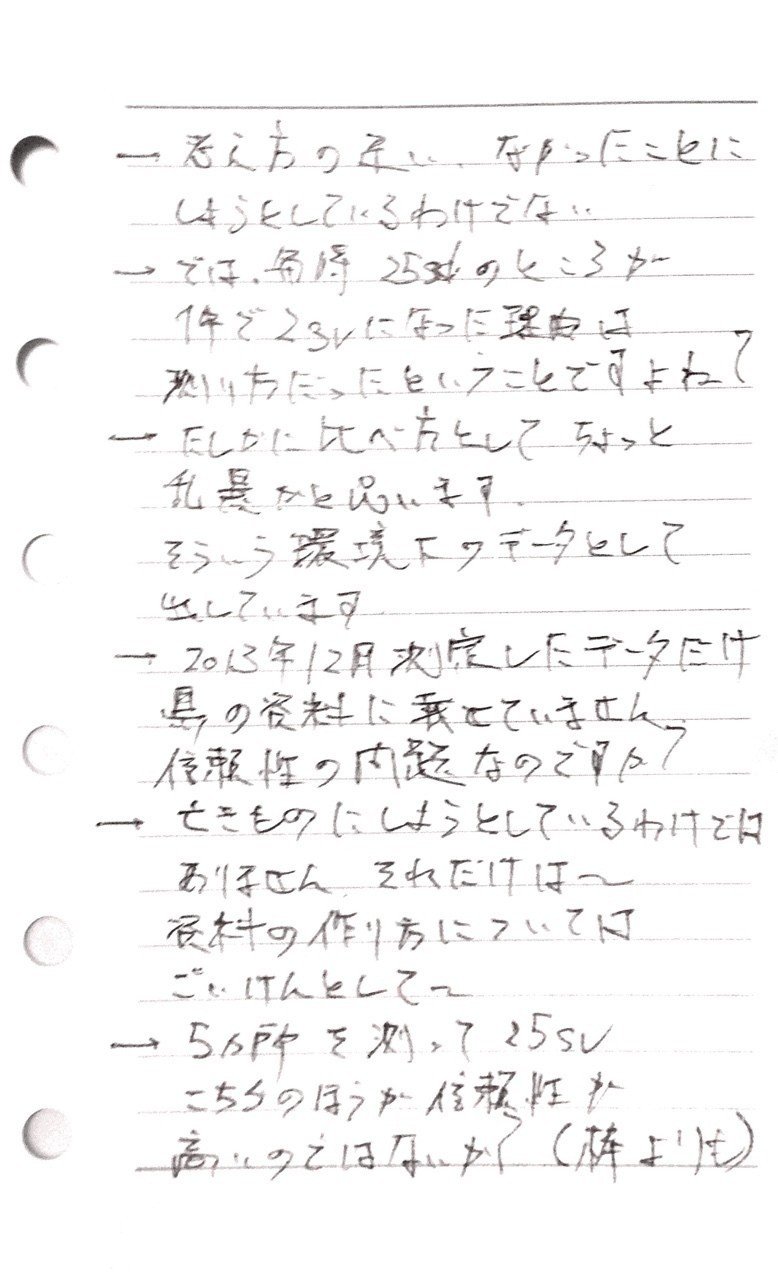 → 考え方の違い、なかったことに
しようとしているわけでない
→ では、毎時 25svのところが
1年で2svになった理由は
測り方だったということですよね?
→ たしかに比べ方として ちょっと
乱暴かと思います。
そういう環境下のデータとして
出しています。
→ 2013年12月測定したデータだけ
県の資料に載せていません
信頼性の問題なのですか?
→ 亡きものにしようとしているわけでは
ありません、それだけは〜
資料の作り方については
ごいけんとして〜
→ 5カ所を測って25SV
こちらのほうが信頼性が
高いのではないか? (棒よりも)